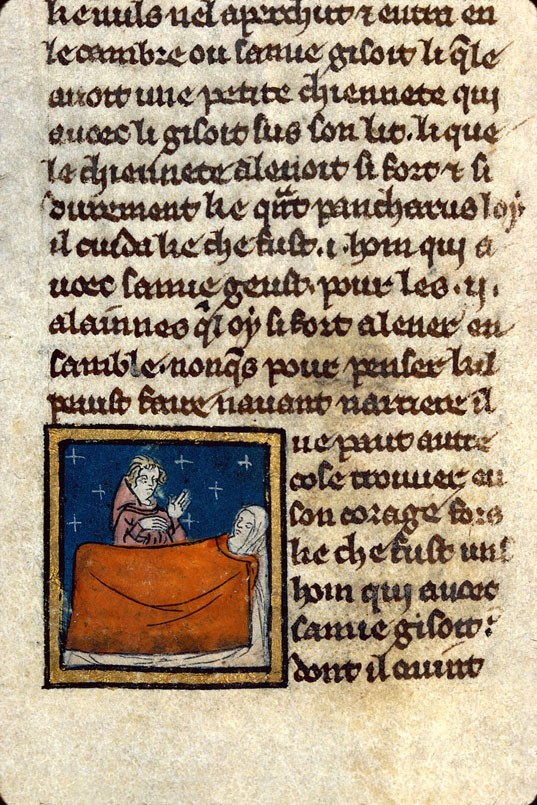 ke nuls nel aperchut ⁊ entra en
le cambre ou samie gisoit li q̄le
auoit une petite chiennete qui
auoec li gisoit sus son lit. li que
le chiennete alenoit si fort ⁊ si
durement ke qu̅t pancharus loÿ
il cuida ke che fust .i. hom qui a
uoec samie geust. pour les .ij.
alainnes q̄l oÿ si fort alener en
samble. nonq̄s pour penser kil
peust faire nauant narriere il
ne paut autre
cose trouuer en
son corage fors
ke che fust uns
hom qui auoec
samie gisoit:
dont il auint